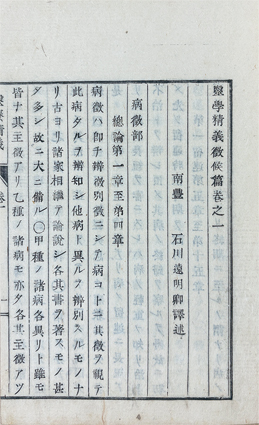 醫學精義徴候篇卷之一
南豊 石川遠明卿譯述
病徴部
總論第一章至第四章
病徴ハ卽チ辨徴別徴ニシテ病コトニ其徴ヲ視テ
此病タルヲ辨知シ他病ト異ルヲ辨別スルモノナ
リ古ヨリ諸家相繼テ論說シ各其書ヲ著スモノ甚
タ多シ故ニ大ニ備ル 甲種ノ諸病各異リト雖モ
皆ナ其主徴アリ乙種ノ諸病モ亦タ各其主徴アツ